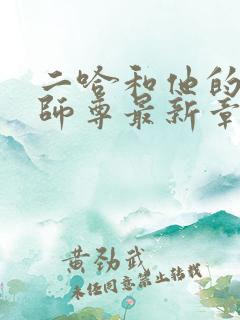 二哈和他的
師尊最新章
黄劲武
未经同意禁止转载